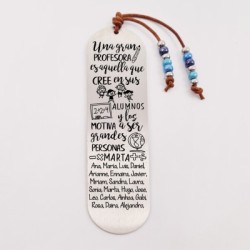 Una gran
PROFESORA
es aquella que
CREE en sus
ALUMNOS
y los
MOTIVA a ser
grandes
PERSONAS
MARTA
Ana, Maria, Luis, Daniel,
Arianne, Ennaira, Javier,
Miriam, Sandra, Laura,
Sonia, Marta, Hugo, Jose,
Lea, Carlos, Ainhoa, Gabi,
Rosa, Daira, Alejandro,